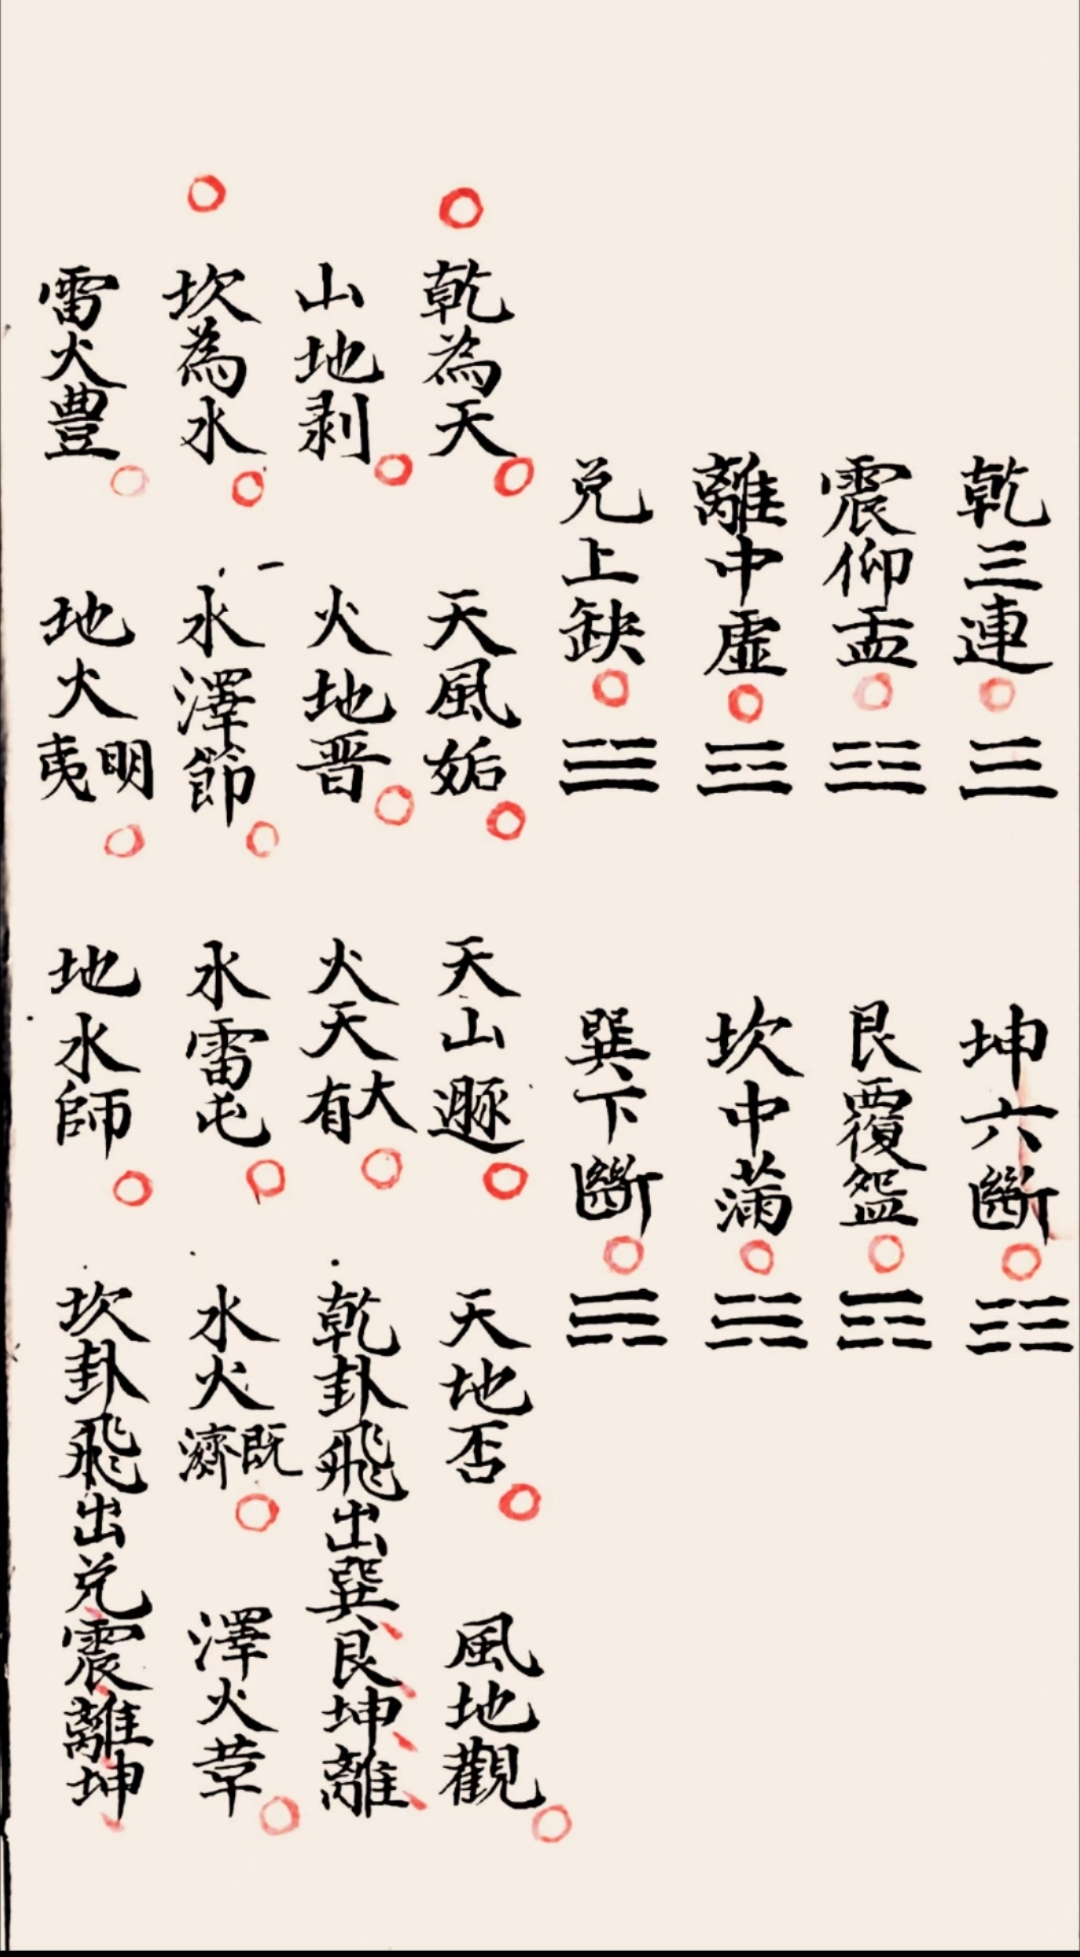 乾三連 坤六斷
震仰盂 艮覆盌
離中虛 坎中滿
兌上缺 巽下斷
乾為天 天風姤 天山遯 天地否 風地觀
山地剥 火地晋 火天大有 乾卦飛出巽艮坤離
坎為水 水澤節 水雷屯 水火既濟 澤火革
雷火豊 地火明夷 地水師 坎卦飛出兌震離坤